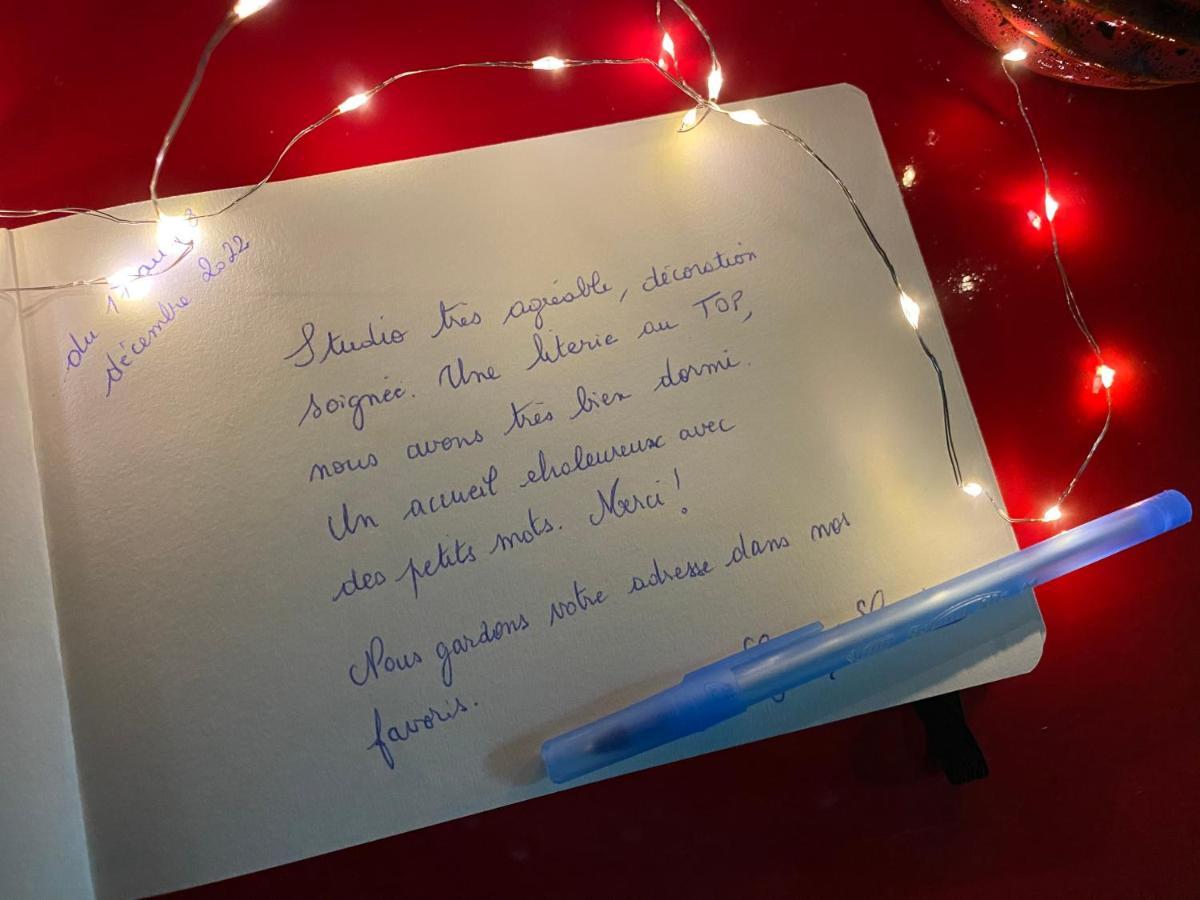 du 17 au 18
décembre 2022
Studio très agréable, décoration
soignée. Une literie au TOP,
nous avons très bien dormi.
Un accueil chaleureux avec
des petits mots. Merci !
Nous gardons votre adresse dans nos
favoris.